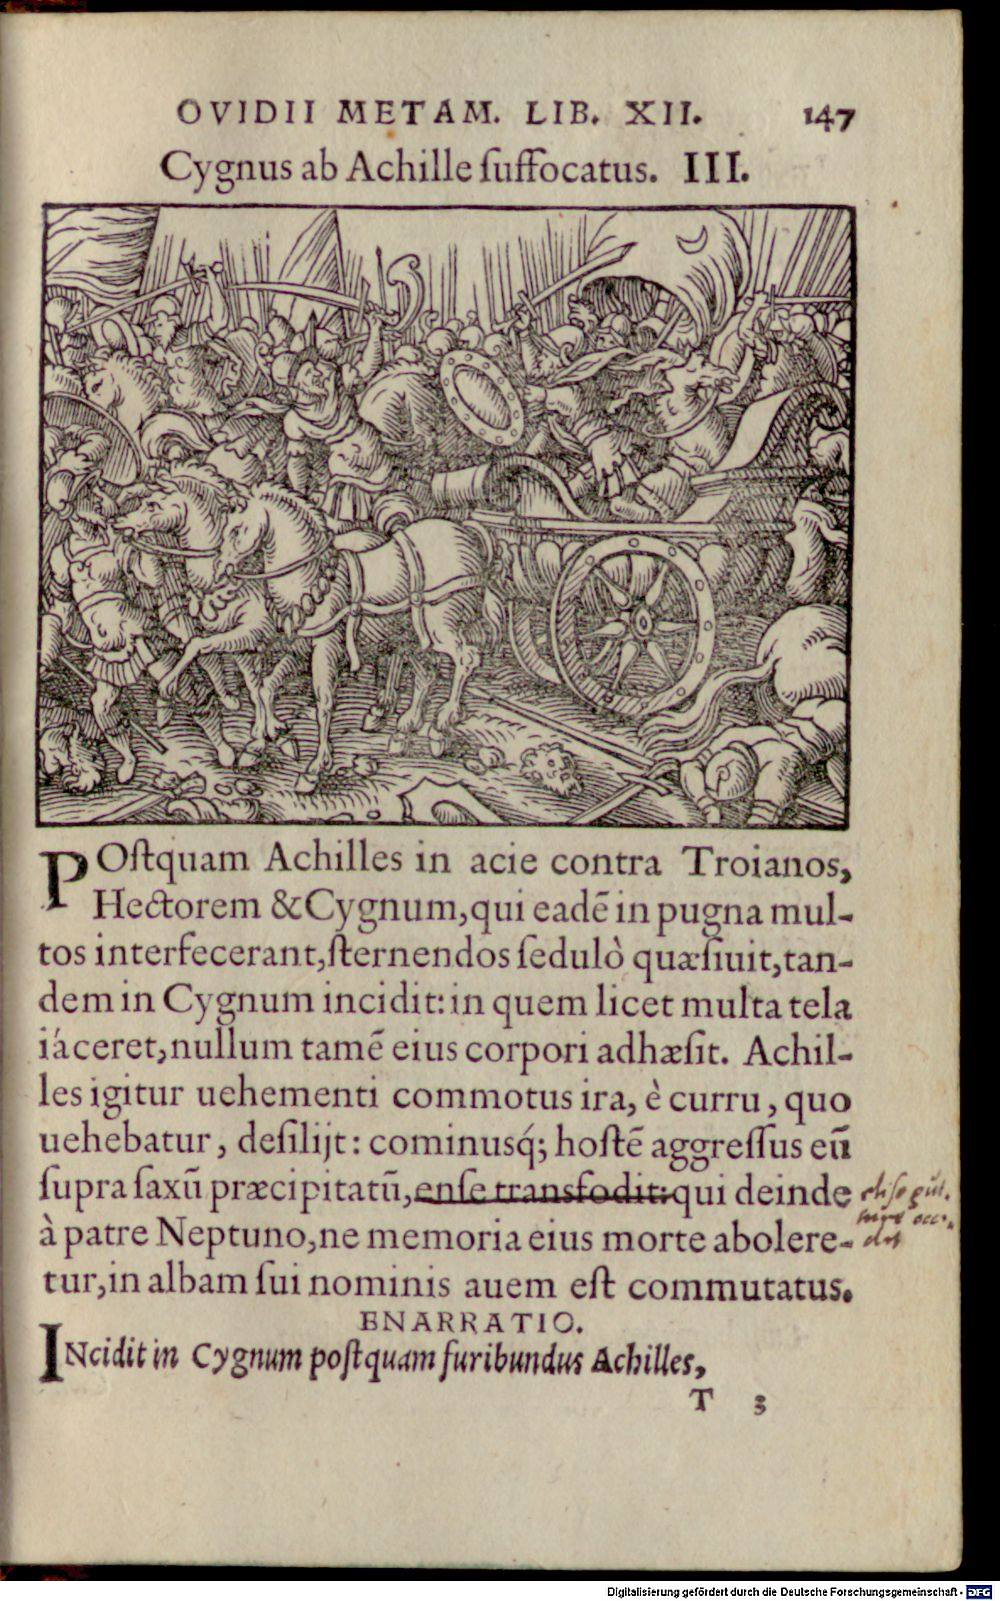 OVIDII METAM. LIB. XII. 147
Cygnus ab Achille ſuffocatus. III.
POſtquam Achilles in acie contra Troianos,
Hectorem & Cygnum, qui eadē in pugna mul-
tos interfecerant, ſternendos ſedulò quæſiuit, tan-
dem in Cygnum incidit: in quem licet multa tela
iáceret, nullum tamē eius corpori adhæſit. Achil-
les igitur uehementi commotus ira, è curru, quo
uehebatur, deſilijt: cominusq́; hoſtē aggreſſus eū
ſupra ſaxū præcipitatū, enſe transfodit: qui deinde
eliſo gut.
à patre Neptuno, ne memoria eius morte abolere-
tur, in albam ſui nominis auem eſt commutatus.
ENARRATIO.
INcidit in Cygnum poſtquam furibundus Achilles,
T 3
Digitalisierung gefördert durch die Deutsche Forschungsgemeinschaft - DFG